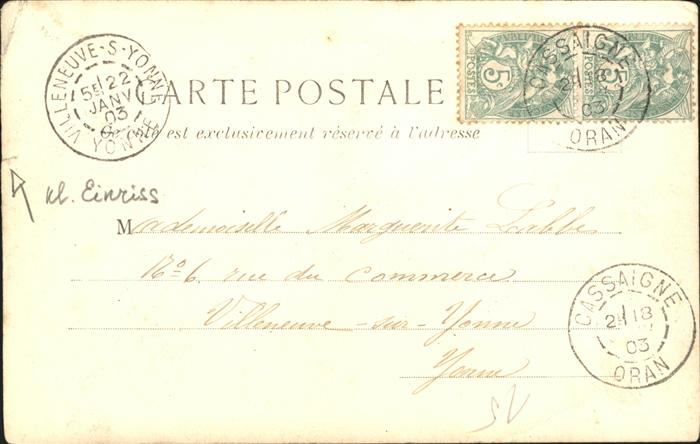 VILLENEUVE-S-YONNE
5E 22
JANV
03
YONNE
CARTE POSTALE
5c
POSTES
CASSAIGNE
18
03
ORAN
5c
POSTES
est exclusivement réservé à l'adresse
kl. Einriss
Mademoiselle Marguerite Labbe
No 6 rue du Commerce
Villeneuve-sur-Yonne
Yonne
CASSAIGNE
2E 18
03
ORAN